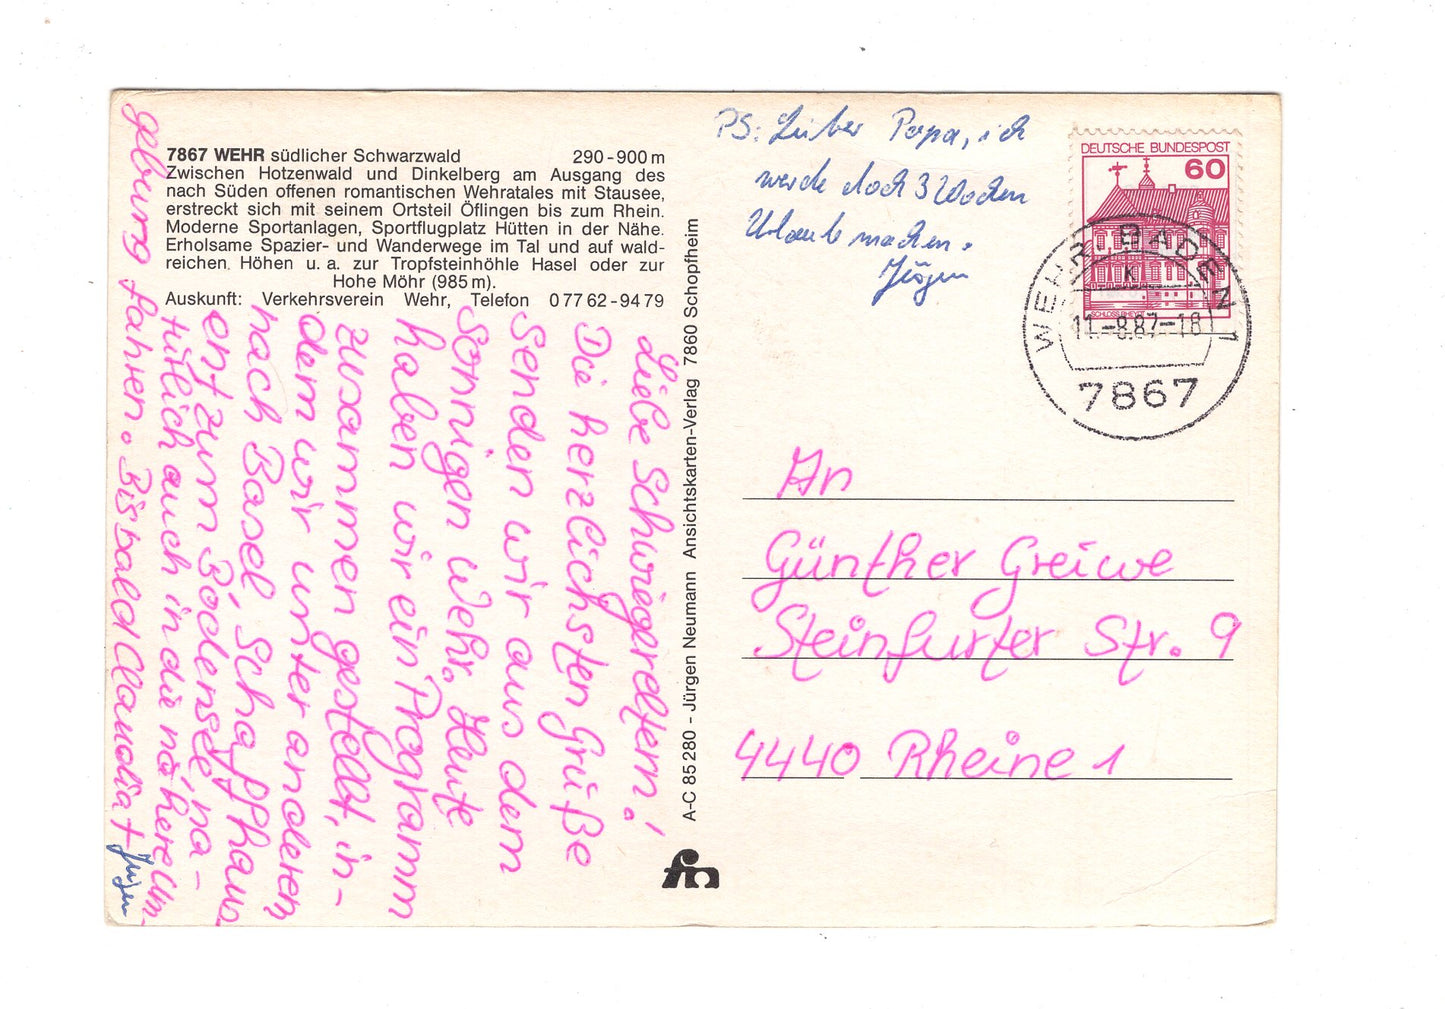 7867 WEHR südlicher Schwarzwald 290-900 m
Zwischen Hotzenwald und Dinkelberg am Ausgang des
nach Süden offenen romantischen Wehratales mit Stausee,
erstreckt sich mit seinem Ortsteil Öflingen bis zum Rhein.
Moderne Sportanlagen, Sportflugplatz Hütten in der Nähe.
Erholsame Spazier- und Wanderwege im Tal und auf wald-
reichen Höhen u. a. zur Tropfsteinhöhle Hasel oder zur
Hohe Möhr (985 m).
Auskunft: Verkehrsverein Wehr, Telefon 0 77 62-94 79
Liebe Schwiegereltern!
Die herzlichsten Grüße
senden wir aus dem
sonnigen Wehr. Heute
haben wir ein Programm
zusammen gestellt, in-
dem wir unter anderem
nach Basel, Schaffhaus
ent zum Bodensee, na-
türlich auch in die nähere Um-
gebung fahren. Bis bald Claudia +
Jürgen
A-C 85 280 - Jürgen Neumann Ansichtskarten-Verlag 7860 Schopfheim
fn
PS: Lieber Papa, ich
werde doch 3 Wochen
Urlaub machen.
Jürgen
DEUTSCHE BUNDESPOST
60
SCHLOSS RHEYDT
WEHR, BADEN 1
K
11.-8.87-18
7867
An
Günther Greiwe
Steinfurter Str. 9
4440 Rheine 1